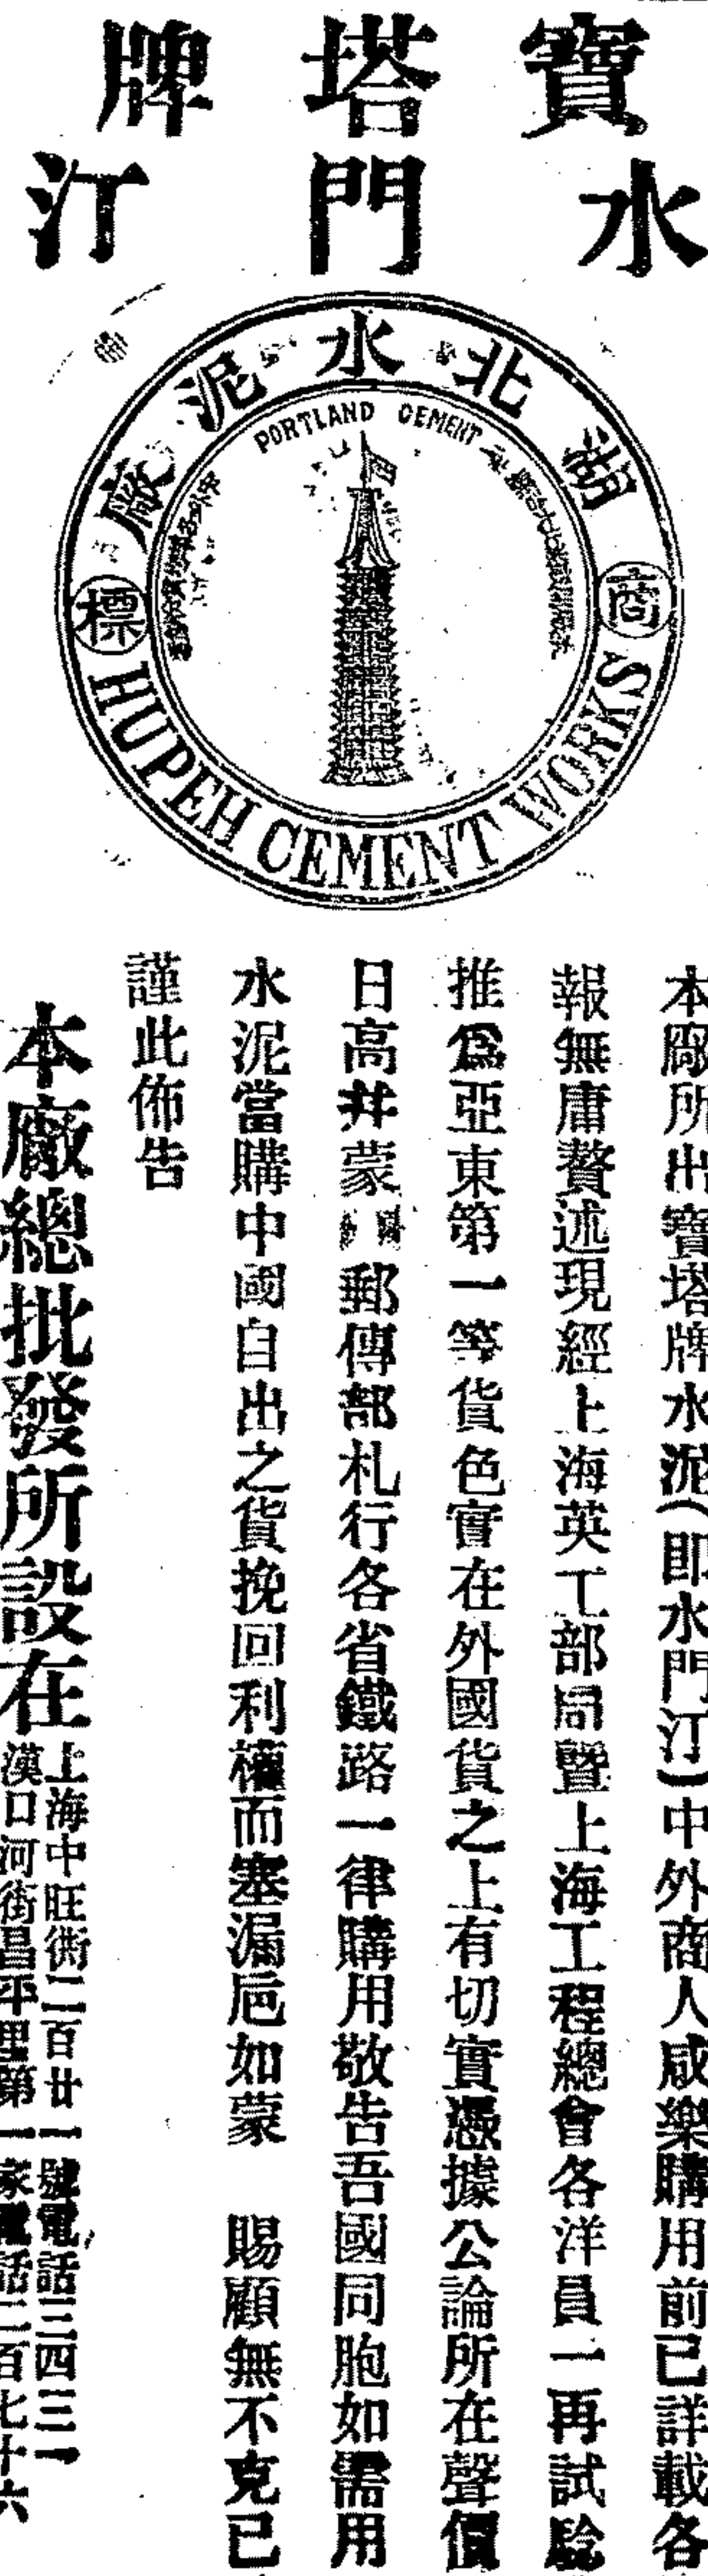 寶塔牌
水門汀
湖北水泥廠
PORTLAND CEMENT
商標
HUPEH CEMENT WORKS
本廠所出寶塔牌水泥(即水門汀)中外商人咸樂購用前已詳載各
報無庸贅述現經上海英工部局暨上海工程總會各洋員一再試驗
推爲亞東第一等貨色實在外國貨之上有切實憑據公論所在聲價
日高并蒙 郵傳部札行各省鐵路一律購用敬告吾國同胞如需用
水泥當購中國自出之貨挽回利權而塞漏巵如蒙 賜顧無不克已
謹此佈告
本廠總批發所設在
上海中旺街二百廿一號電話三四三一
漢口河街昌平里第一家電話二百七十六